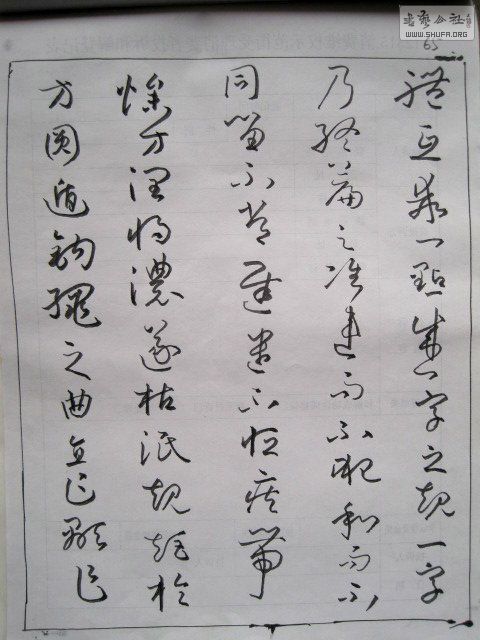 書藝公社
WWW.SHUFA.ORG
63
體互乖一點成一字之規一字
乃終篇之准違而不犯和而不
同留不常遲遣不恒疾帶
燥方潤將濃遂枯泯規矩於
方圓遁鉤繩之曲直乍顯乍